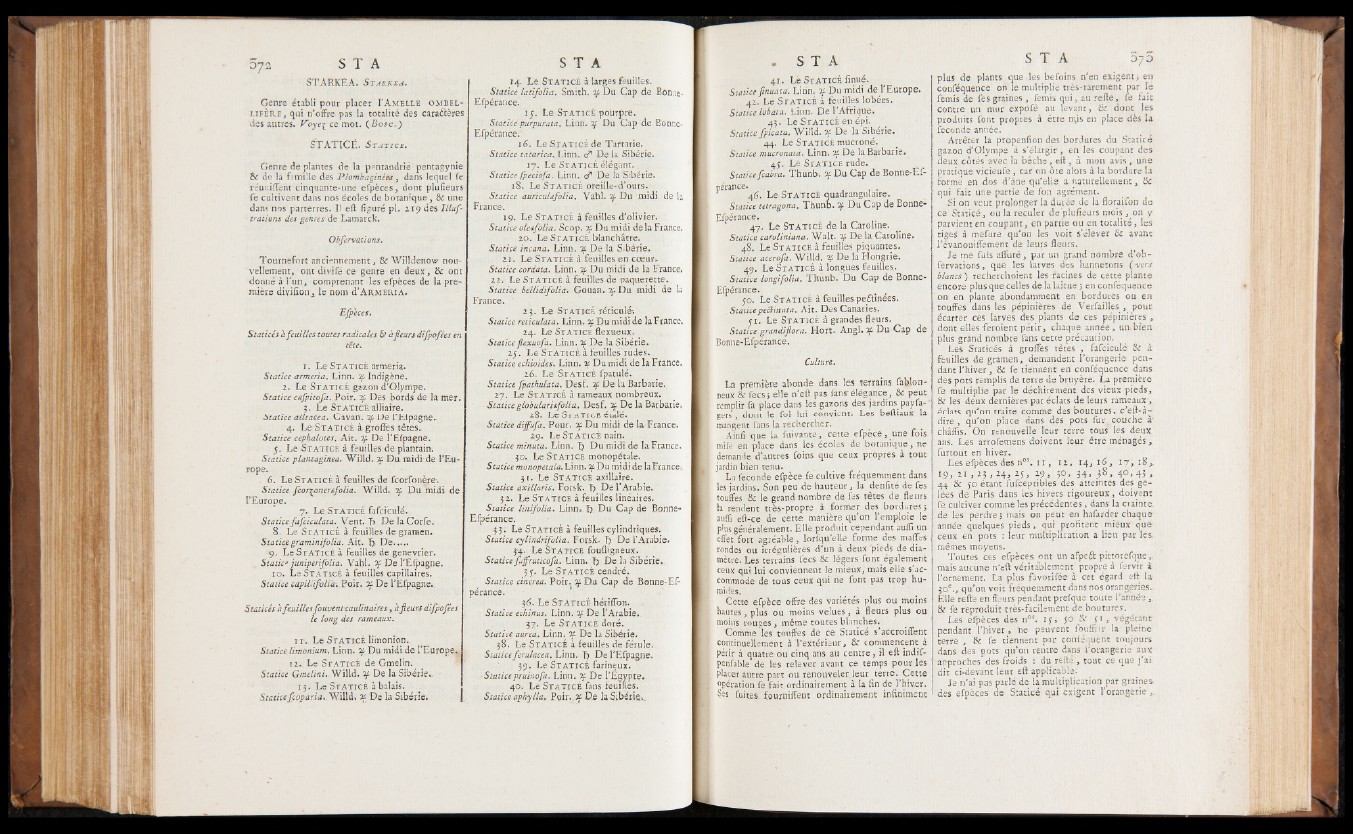 572 S T A
STARKEA. STARKEA.
Genre établi pour placer l'AMELLE OMBEL-
LIFÈRE, qui n'offre pas la totalité des caractères
des autres. Voyez ce mot. (Bosc.)
STATICÉ. STATICE.
Genre de plantes de la pentandrie pentagynie
& de la famille des Plombaginées, dans lequel se
réunissent cinquante-une espèces, dont plusieurs
se cultivent dans nos écoles de botanique, & une
dans nos parterres. Il est figuré pl. 219 des Illus-
trations des genres de Lamarck.
Observations.
Tournefort anciennement, & Willdenow nou-
vellement, ont divisé ce genre en deux, & ont
donné à l'un, comprenant les espèces de la pre-
mière division, le nom d'ARMERIA.
Espèces.
Staticés à feuilles toutes radicales & à fleurs disposées en
tête.
1. Le STATICÉ armeria.
Statice armeria. Linn. ♃ Indigène.
2. Le STATICÉ gazon d'Olympe.
Statice cespitosa. Poir. ♃ Des bords de la mer.
3. Le STATICÉ alliaire.
Statice alliacea. Cavan. ♃ De l'Espagne.
4. Le STATICÉ à grosses têtes.
Statice cephalotes. Ait. ♃ De l'Espagne.
5. Le STATICÉ à feuilles de plantain.
Statice plantaginea. Willd. ♃ Du midi de l'Eu-
rope.
6. Le STATICÉ à feuilles de scorsonère.
Statice scorzonerifolia. Willd. ♃ Du midi de
l'Europe.
7. Le STATICÉ fasciculé.
Statice fasciculata. Vent. ♄ De la Corse.
8. Le STATICÉ à feuilles de gramen.
Statice graminifolia. Ait. ♄ De.....
9. Le STATICÉ à feuilles de genevrier.
Statice juniperifolia. Vahl. ♃ De l'Espagne.
10. Le STATICÉ à feuilles capillaires.
Statice capillifolia. Poir. ♃ De l'Espagne.
Staticés à feuilles souvent caulinaires, à fleurs disposées
le long des rameaux.
11. Le STATICÉ limonion.
Statice limonium. Linn. ♃ Du midi de l'Europe.
12. Le STATICÉ de Gmelin.
Statice Gmelini. Willd. ♃ De la Sibérie.
13. Le STATICÉ à balais.
Statice scoparia. Willd. ♃ De la Sibérie.
S T A
14. Le STATICÉ à larges feuilles.
Statice latifolia. Smith. ♃ Du Cap de Bonne-
Espérance.
15. Le STATICÉ pourpré.
Statice purpurata. Linn. ♃ Du Cap de Bonne-
Espérance.
16. Le STATICÉ de Tartarie.
Statice tatarica. Linn. ♂ De la Sibérie.
17. Le STATICÉ élégant.
Statice speciosa. Linn. ♂ De la Sibérie.
18. Le STATICÉ oreille-d'ours.
Statice auriculæfolia. Vahl. ♃ Du midi de la
France.
19. Le STATICÉ à feuilles d'olivier.
Statice oleæfolia. Scop. ♃ Du midi de la France.
20. Le STATICÉ blanchâtre.
Statice incana. Linn. ♃ De la Sibérie.
21. Le STATICÉ à feuilles en cœur.
Statice cordata. Linn. ♃ Du midi de la France.
22. Le STATICÉ à feuilles de paquerette.
Statice bellidifolia. Gouan. ♃ Du midi de la
France.
23. Le STATICÉ réticulé.
Statice reticulata. Linn. ♃ Du midi de la France.
24. Le STATICÉ flexueux.
Statice flexuosa. Linn. ♃ De la Sibérie.
25. Le STATICÉ à feuilles rudes.
Statice echioides. Linn. ♃ Du midi de la France.
26. Le STATICÉ spatulé.
Statice spathulata. Desf. ♃ De la Barbarie.
27. Le STATICÉ à rameaux nombreux.
Statice globulariæfolia. Desf. ♃ De la Barbarie.
28. Le STATICÉ étalé.
Statice diffusa. Pour. ♃ Du midi de la France.
29. Le STATICÉ nain.
Statice minuta. Linn. ♄ Du midi de la France.
30. Le STATICÉ monopétale.
Statice monopetala. Linn. ♃ Du midi de la France.
31. Le STATICÉ axillaire.
Statice axillaris. Forsk. ♄ De l'Arabie.
32. Le STATICÉ à feuilles linéaires.
Statice linifolia. Linn. ♄ Du Cap de Bonne-
Espérance.
33. Le STATICÉ à feuilles cylindriques.
Statice cylindrifolia. Forsk. ♄ De l'Arabie.
34. Le STATICÉ sousligneux.
Statice suffruticosa. Linn. ♄ De la Sibérie.
35. Le STATICÉ cendré.
Statice cinerea. Poir. ♃ Du Cap de Bonne-Es-
pérance.
36. Le STATICÉ hérisson.
Statice echinus. Linn. ♃ De l'Arabie.
37. Le STATICÉ doré.
Statice aurea. Linn. ♃ De la Sibérie.
38. Le STATICÉ à feuilles de férule.
Statice ferulacea. Linn. ♄ De l'Espagne.
39. Le STATICÉ farineux.
Statice pruinosa. Linn. ♃ De l'Égypte.
40. Le STATICÉ sans feuilles.
Statice aphylla. Poir. ♃ De la Sibérie.
S T A
41. Le STATICÉ sinué.
Statice sinuata. Linn. ♃ Du midi de l'Europe.
42. Le STATICÉ à feuilles lobées.
Statice lobata. Linn. De l'Afrique.
43. Le STATICÉ en épi.
Statice spicata. Willd. ♃ De la Sibérie.
44. Le STATICÉ mucroné.
Statice mucronata. Linn. ♃ De la Barbarie.
45. Le STATICÉ rude.
Statice scabra. Thunb. ♃ Du Cap de Bonne-Es-
pérance.
46. Le STATICÉ quadrangulaire.
Statice tetragona. Thunb. ♃ Du Cap de Bonne-
Espérance.
47. Le STATICÉ de la Caroline.
Statice caroliniana. Walt. ♃ De la Caroline.
48. Le STATICÉ à feuilles piquantes.
Statice acerosa. Willd. ♃ De la Hongrie.
49. Le STATICÉ à longues feuilles.
Statice longifolia. Thunb. Du Cap de Bonne-
Espérance.
50. Le STATICÉ à feuilles pectinées.
Statice pectinata. Ait. Des Canaries.
51. Le STATICÉ à grandes fleurs.
Statice grandiflora. Hort. Angl. ♃ Du Cap de
Bonne-Espérance.
Culture.
La première abonde dans les terrains sablon-
neux & secs; elle n'est pas sans élégance, & peut
remplir sa place dans les gazons des jardins paysa-
gers, dont le sol lui convient. Les bestiaux la
mangent sans la rechercher.
Ainsi que la suivante, cette espèce, une fois
mise en place dans les écoles de botanique, ne
demande d'autres soins que ceux propres à tout
jardin bien tenu.
La seconde espèce se cultive fréquemment dans
les jardins. Son peu de hauteur, la densité de ses
touffes & le grand nombre de ses têtes de fleurs
la rendent très-propre à former des bordures;
aussi est-ce de cette manière qu'on l'emploie le
plus généralement. Elle produit cependant aussi un
effet fort agréable, lorsqu'elle forme des masses
rondes ou irrégulières d'un à deux pieds de dia-
mètre. Les terrains secs & légers sont également
ceux qui lui conviennent le mieux, mais elle s'ac-
commode de tous ceux qui ne sont pas trop hu-
mides.
Cette espèce offre des variétés plus ou moins
hautes, plus ou moins velues, à fleurs plus ou
moins rouges, même toutes blanches.
Comme les touffes de ce Staticé s'accroissent
continuellement à l'extérieur, & commencent à
périr à quatre ou cinq ans au centre, il est indis-
pensable de les relever avant ce temps pour les
placer autre part ou renouveler leur terre. Cette
opération se fait ordinairement à la fin de l'hiver.
Ses suites fournissent ordinairement infiniment
S T A 573
plus de plants que les besoins n'en exigent; en
conséquence on le multiplie très-rarement par le
semis de ses graines, semis qui, au reste, se fait
contre un mur exposé au levant, & dont les
produits sont propres à être mis en place dès la
seconde année.
Arrêter la propension des bordures du Staticé
gazon d'Olympe à s'élargir, en les coupant des
deux côtés avec la bêche, est, à mon avis, une
pratique vicieuse, car on ôte alors à la bordure la
forme en dos d'âne qu'elle a naturellement, &
qui fait une partie de son agrément.
Si on veut prolonger la durée de la floraison de
ce Staticé, ou la reculer de plusieurs mois, on y
parvient en coupant, en partie ou en totalité, les
tiges à mesure qu'on les voit s'élever & avant
l'évanouissement de leurs fleurs.
Je me suis assuré, par un grand nombre d'ob-
servations, que les larves des hannetons (vers
blancs) recherchoient les racines de cette plante
encore plus que celles de la laitue; en conséquence
on en plante abondamment en bordures ou en
touffes dans les pépinières de Versailles, pour
écarter ces larves des plants de ces pépinières,
dont elles feroient périr, chaque année, un bien
plus grand nombre sans cette précaution.
Les Staticés à grosses têtes, fasciculé & à
feuilles de gramen, demandent l'orangerie pen-
dant l'hiver, & se tiennent en conséquence dans
des pots remplis de terre de bruyère. La première
se multiplie par le déchirement des vieux pieds,
& les deux dernières par éclats de leurs rameaux,
éclats qu'on traite comme des boutures, c'est-à-
dire, qu'on place dans des pots sur couche à
châssis. On renouvelle leur terre tous les deux
ans. Les arrosemens doivent leur être ménagés,
surtout en hiver.
Les espèces des nos. 11, 12, 14, 16, 17, 18,
19, 21, 23, 24, 25, 29, 30, 34, 38, 40, 43,
44 & 50 étant susceptibles des atteintes des ge-
lées de Paris dans les hivers rigoureux, doivent
se cultiver comme les précédentes, dans la crainte
de les perdre; mais on peut en hasarder chaque
année quelques pieds, qui profitent mieux que
ceux en pots: leur multiplication a lieu par les
mêmes moyens.
Toutes ces espèces ont un aspect pittoresque,
mais aucune n'est véritablement propre à servir à
l'ornement. La plus favorisée à cet égard est la
30e., qu'on voit fréquemment dans nos orangeries.
Elle reste en fleurs pendant presque toute l'année,
& se reproduit très-facilement de boutures.
Les espèces des nos. 15, 50 & 51, végétant
pendant l'hiver, ne peuvent souffrir la pleine
terre, & se tiennent par conséquent toujours
dans des pots qu'on rentre dans l'orangerie aux
approches des froids: du reste, tout ce que j'ai
dit ci-devant leur est applicable.
Je n'ai pas parlé de la multiplication par graines
des espèces de Staticé qui exigent l'orangerie,